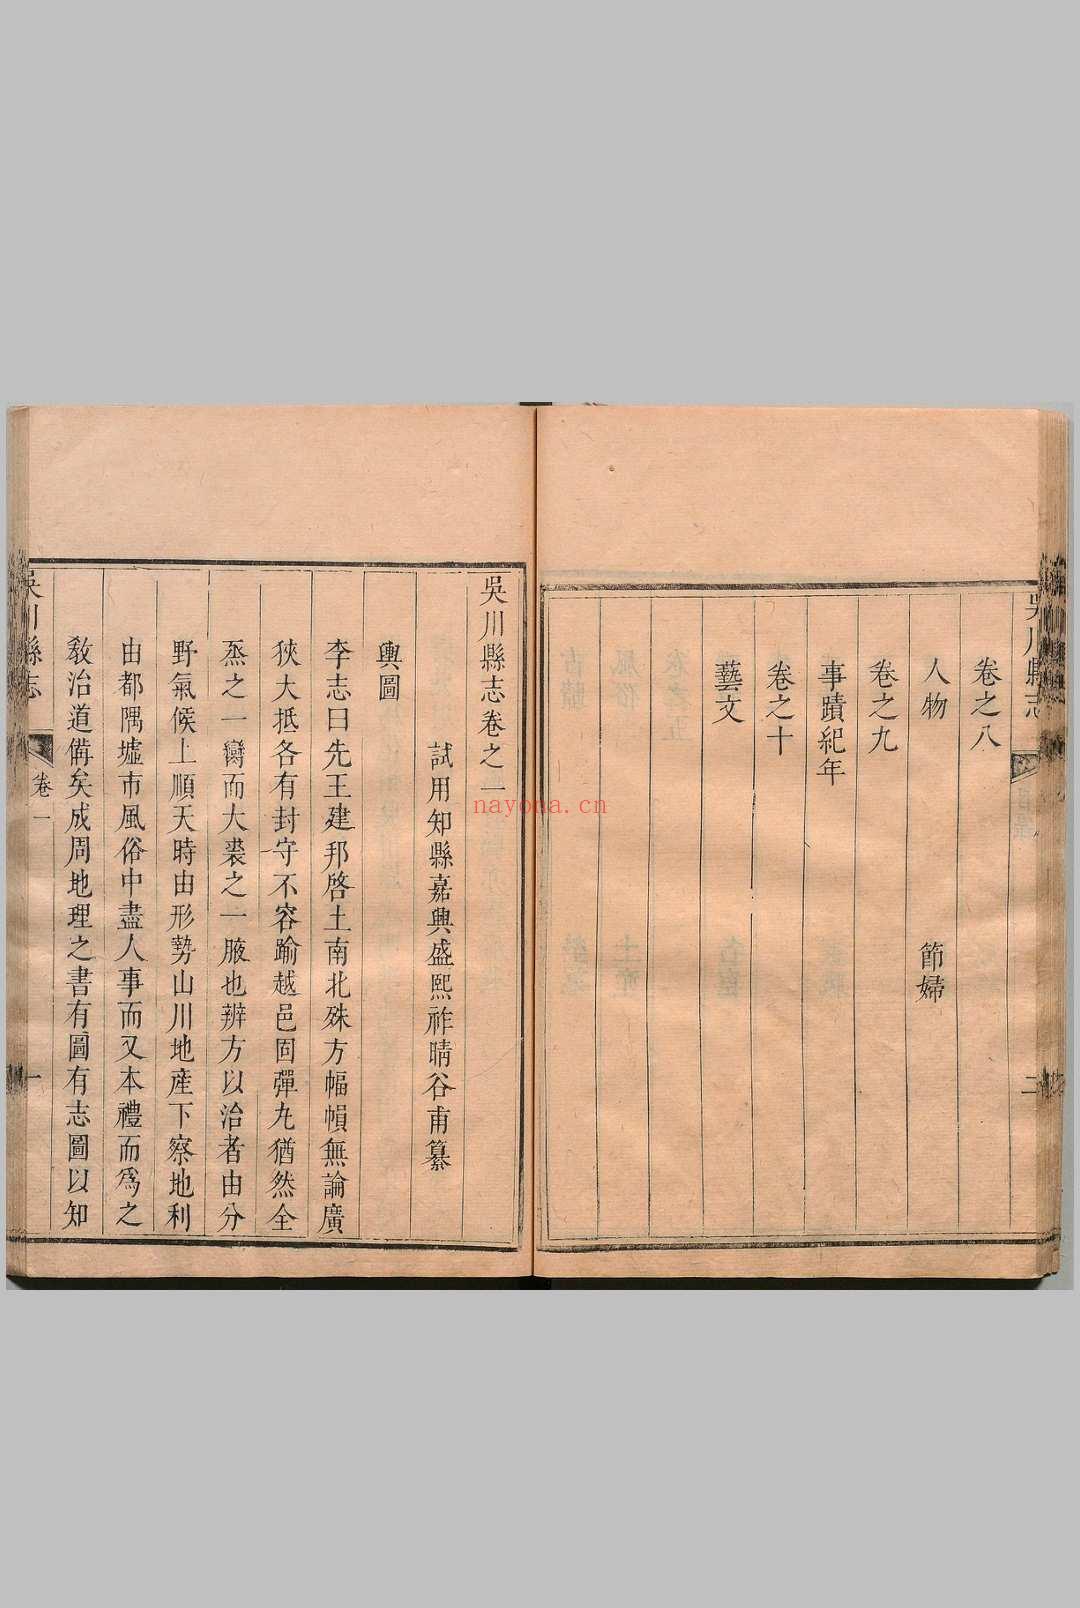 吳川縣志
二
卷之八
人物
節婦
卷之九
事蹟紀年
卷之十
藝文
吳川縣志卷之一
試用知縣嘉興盛熙祚晴谷甫纂
輿圖
李志曰先王建邦啓土南北殊方幅幀無論廣
狹大抵各有封守不容踰越邑固彈丸猶然全
烝之一臠而大裘之一腋也辨方以治者由分
野氣候上順天時由形勢山川地產下察地利
由都隅墟市風俗中盡人事而又本禮而爲之
敎治道備矣成周地理之書有圖有志圖以知
吳川縣志
卷一
一
nayona.cn